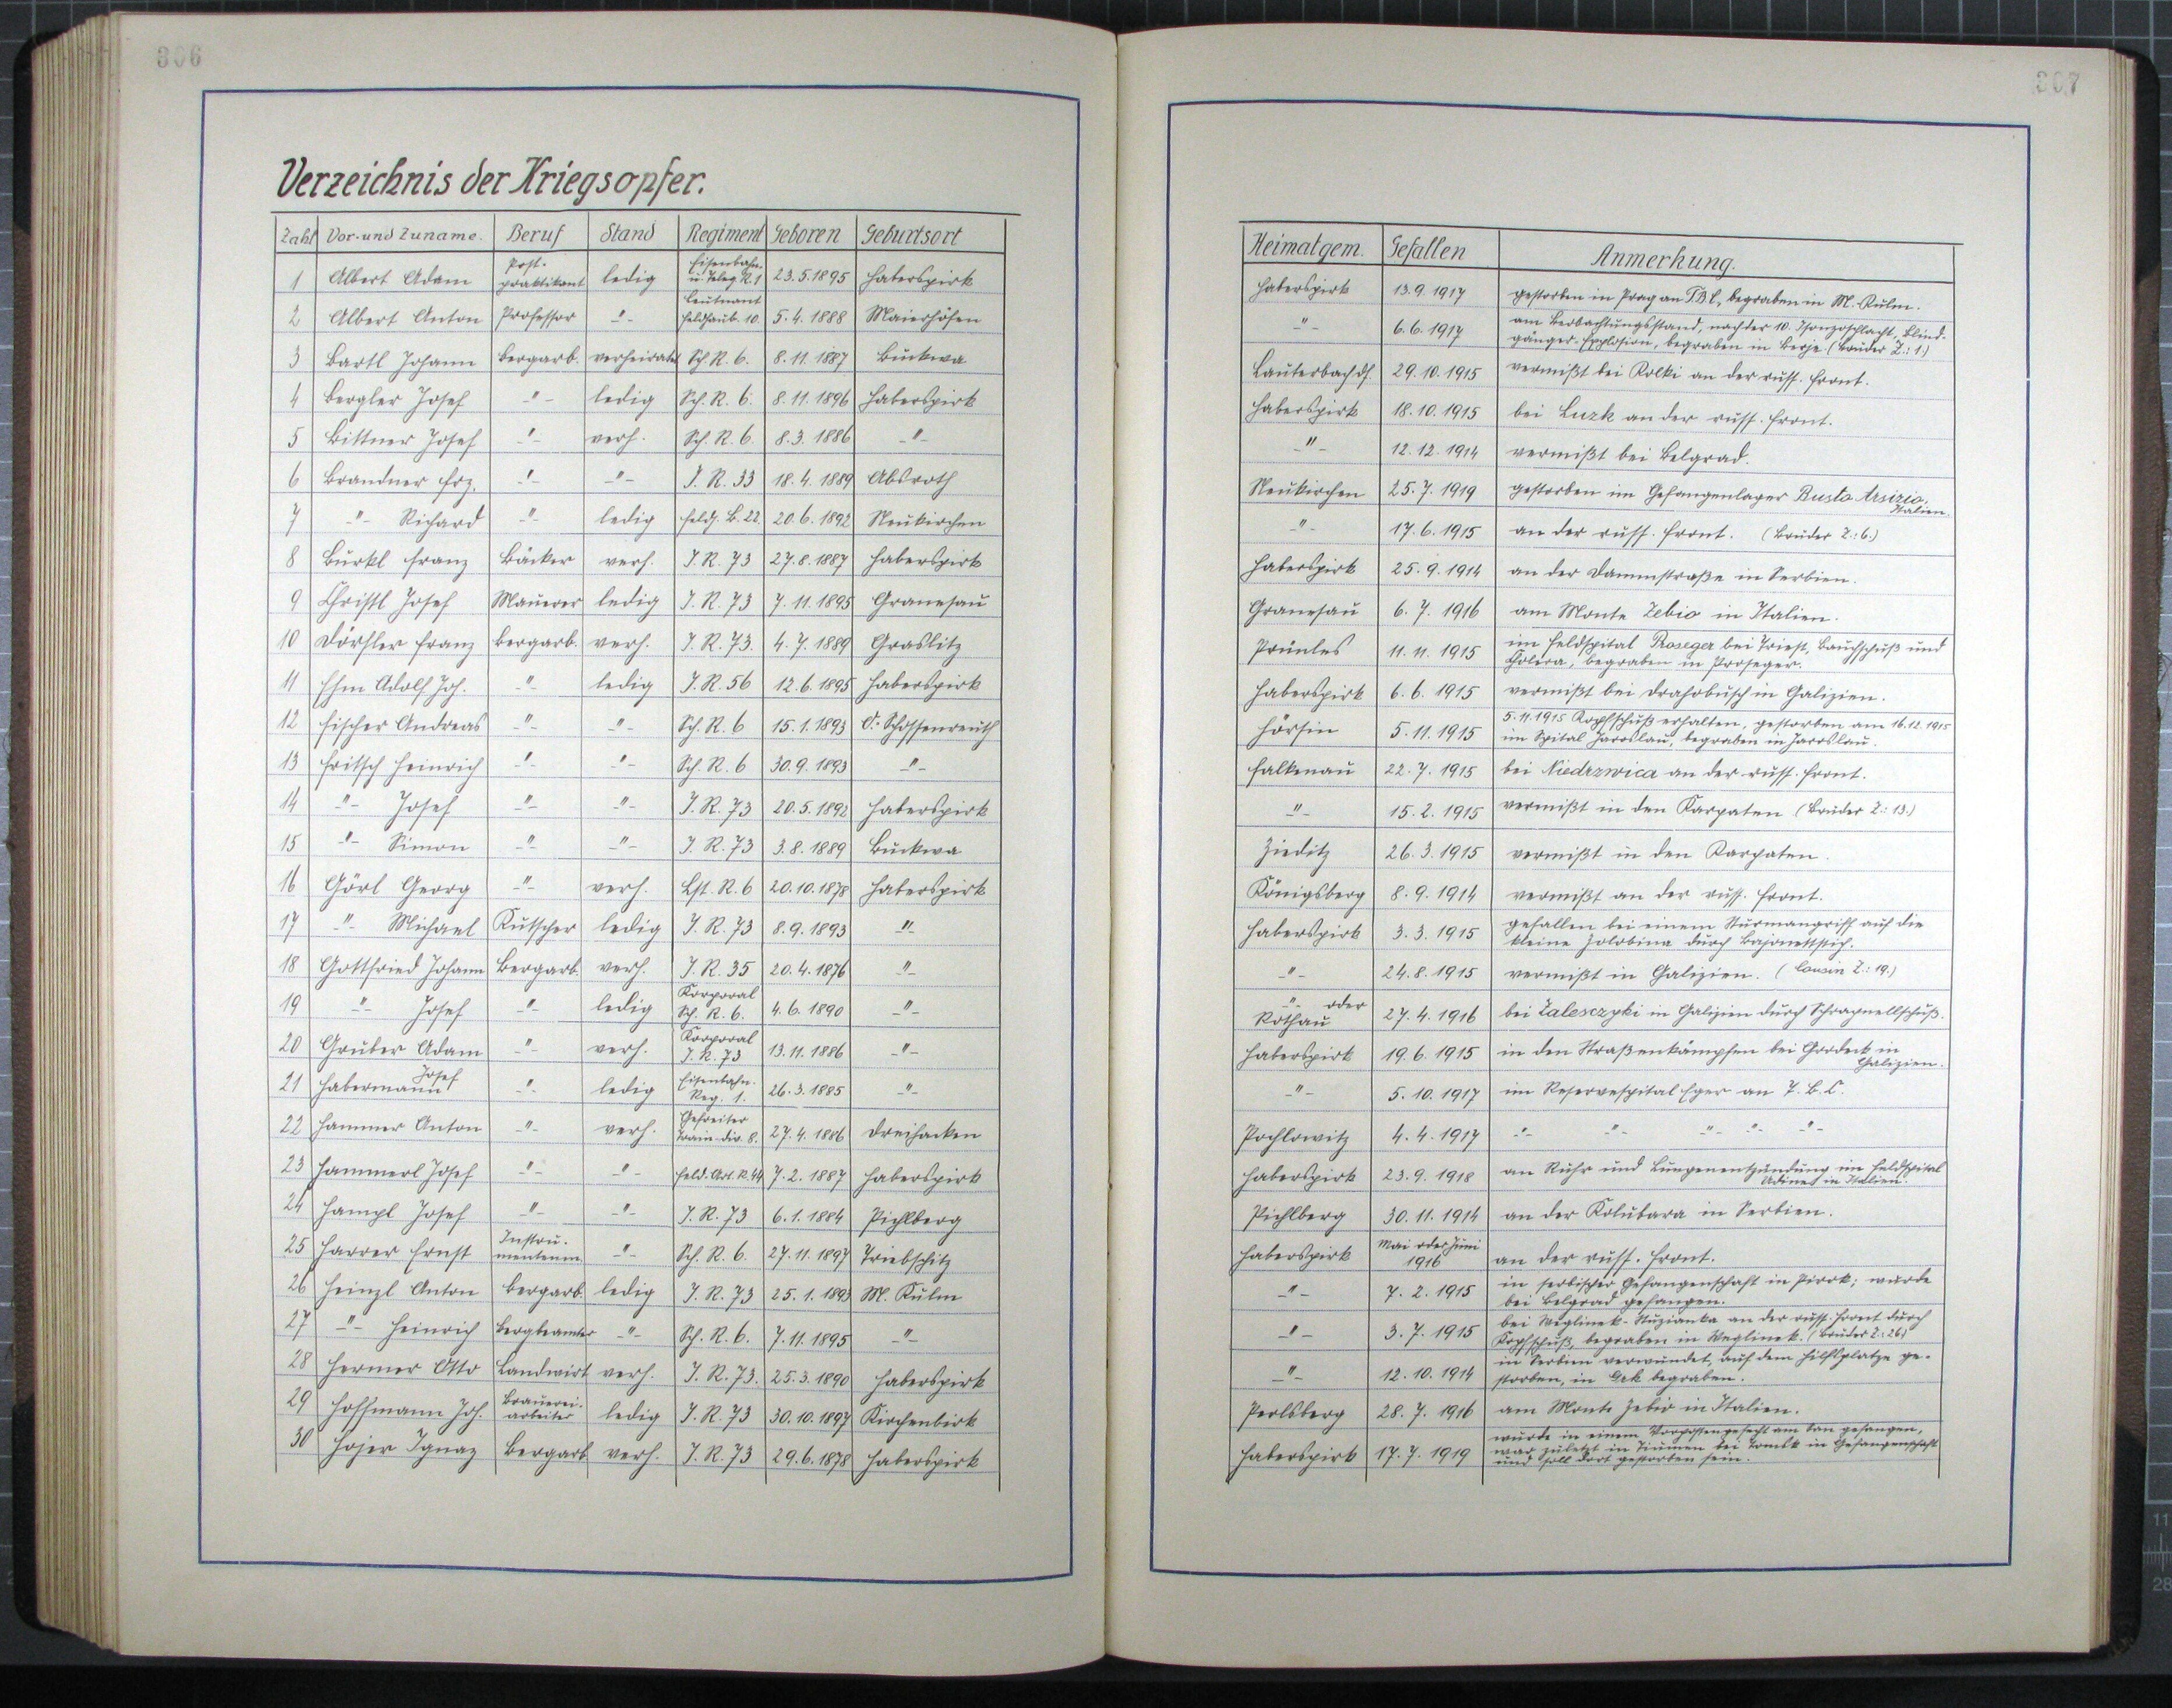 306
Verzeichnis der Kriegsopfer.
Zahl Vor- und Zuname. Beruf Stand Regiment Geboren Geburtsort
1 Albert Adam Post-praktikant ledig Eisenbahn- u. Teleg. R. 1 23.5.1895 Haberspirk
2 Albert Anton Professor -"- Leutnant Feldhaub. 10 5.4.1888 Maierhöfen
3 Bartl Johann Bergarb. verheiratet Sch. R. 6. 8.11.1887 Buckwa
4 Bergler Josef -"- ledig Sch. R. 6. 8.11.1896 Haberspirk
5 Bittner Josef -"- verh. Sch. R. 6. 8.3.1886 -"-
6 Brandner Frz. -"- -"- I. R. 33 18.4.1889 Absroth
7 -"- Richard -"- ledig Feldj. B. 22. 20.6.1892 Neukirchen
8 Burkl Franz Bäcker verh. I. R. 73 27.8.1887 Haberspirk
9 Christl Josef Maurer ledig I. R. 73 7.11.1895 Granesau
10 Dörfler Franz Bergarb. verh. I. R. 73. 4.7.1889 Graslitz
11 Ehm Adolf Joh. -"- ledig I. R. 56 12.6.1895 Haberspirk
12 Fischer Andreas -"- -"- Sch. R. 6 15.1.1893 O.-Schossenreuth
13 Fritsch Heinrich -"- -"- Sch. R. 6 30.9.1893 -"-
14 -"- Josef -"- -"- I. R. 73 20.5.1892 Haberspirk
15 -"- Simon -"- -"- I. R. 73 3.8.1889 Buckwa
16 Görl Georg -"- verh. Lst. R. 6 20.10.1878 Haberspirk
17 -"- Michael Kutscher ledig I. R. 73 8.9.1893 -"-
18 Gottfried Johann Bergarb. verh. I. R. 35 20.4.1876 -"-
19 -"- Josef -"- ledig Korporal Sch. R. 6. 4.6.1890 -"-
20 Gruber Adam -"- verh. Korporal I. R. 73 13.11.1886 -"-
21 Habermann Josef -"- ledig Eisenbahn-Reg. 1. 26.3.1885 -"-
22 Hammer Anton -"- verh. Gefreiter Train-div. 8. 27.4.1886 Dreihacken
23 Hammerl Josef -"- -"- Feld. Art. R. 44 7.2.1887 Haberspirk
24 Hampl Josef -"- -"- I. R. 73 6.1.1884 Pichlberg
25 Harrer Ernst Instru-mentenm. -"- Sch. R. 6. 27.11.1897 Triebschitz
26 Heinzl Anton Bergarb. ledig I. R. 73 25.1.1893 M. Kulm
27 -"- Heinrich Bergbeamter -"- Sch. R. 6. 7.11.1895 -"-
28 Hermer Otto Landwirt verh. I. R. 73. 25.3.1890 Haberspirk
29 Hoffmann Joh. Brauerei-arbeiter ledig I. R. 73 30.10.1897 Kirchenbirk
30 Hojer Ignaz Bergarb verh. I. R. 73 29.6.1878 Haberspirk
307
Heimatgem. Gefallen Anmerkung.
Haberspirk 13.9.1917 gestorben in Prag an TBC, begraben in M.-Kulm.
-"- 6.6.1917 am Beobachtungsstand, nach der 10. Isonzoschlacht, Blind-
gänger-Explosion, begraben in Berje (Bruder Z.: 1.)
Lauterbach df. 29.10.1915 vermißt bei Kolki an der russ. Front.
Haberspirk 18.10.1915 bei Luzk an der russ. Front.
-"- 12.12.1914 vermißt bei Belgrad.
Neukirchen 25.7.1919 gestorben im Gefangenlager Busto Arsizio,
Italien.
-"- 17.6.1915 an der russ. Front. (Bruder Z.: 6.)
Haberspirk 25.9.1914 an der Dammstraße in Serbien.
Granesau 6.7.1916 am Monte Zebio in Italien.
Prünles 11.11.1915 im Feldspital Proseger bei Triest, Bauchschuß und
Cholera, begraben in Proseger.
Haberspirk 6.6.1915 vermißt bei Drahobusch in Galizien.
Hörsin 5.11.1915 5.11.1915 Kopfschuß erhalten, gestorben am 16.12.1915
im Spital Jaroslau, begraben in Jaroslau.
Falkenau 22.7.1915 bei Niedrzwica an der russ. Front.
-"- 15.2.1915 vermißt in den Karpaten (Bruder Z.: 13.)
Zieditz 26.3.1915 vermißt in den Karpaten.
Königsberg 8.9.1914 vermißt an der russ. Front.
Haberspirk 3.3.1915 gefallen bei einem Sturmangriff auf die
kleine Zolobina durch Bajonettstich.
-"- 24.8.1915 vermißt in Galizien. (Cousin Z.: 19.)
-"- oder Rothau 27.4.1916 bei Zalesczyki in Galizien durch Schrapnellschuß.
Haberspirk 19.6.1915 in den Straßenkämpfen bei Grodeck in
Galizien.
-"- 5.10.1917 im Reservespital Eger an T. B. C.
Pochlowitz 4.4.1917 -"- -"- -"- -"- -"-
Haberspirk 23.9.1918 an Ruhr und Lungenentzündung im Feldspital
Adinet in Italien.
Pichlberg 30.11.1914 an der Kolubara in Serbien.
Haberspirk Mai oder Juni 1916 an der russ. Front.
-"- 7.2.1915 in serbischer Gefangenschaft in Pirok; wurde
bei Belgrad gefangen.
-"- 3.7.1915 bei Weglinek-Stuzianka an der russ. Front durch
Kopfschuß, begraben in Weglinek. (Bruder Z.: 26.)
-"- 12.10.1914 in Serbien verwundet, auf dem Hilfsplatze ge-
storben, in Grk begraben.
Perlsberg 28.7.1916 am Monte Zebio in Italien.
Haberspirk 17.7.1919 wurde in einem Vorpostengefecht am San gefangen,
war zuletzt in Tiumen bei Tomsk in Gefangenschaft
und soll dort gestorben sein.
11
28